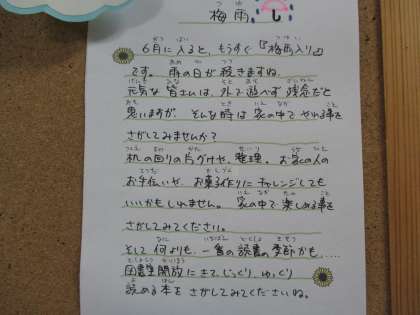 梅雨
6月に入ると、もうすぐ『梅雨入り』
です。雨の日が続きますね。
元気な皆さいは、外で遊べず残念だと
思いますが、そんな時は家の中でやれる事を
さがしてみませんか？
机の回りの片づけや、整理。お家の人の
お手伝いや、お菓子作りにチャレンジしても
いいかもしれません。家の中で楽しめる事を
さがしてみてください。
そして何よりも、一番の読書の季節かも......
図書室開放にきて、じっくり、ゆっくり
読める本をさがしてみてくださいね。